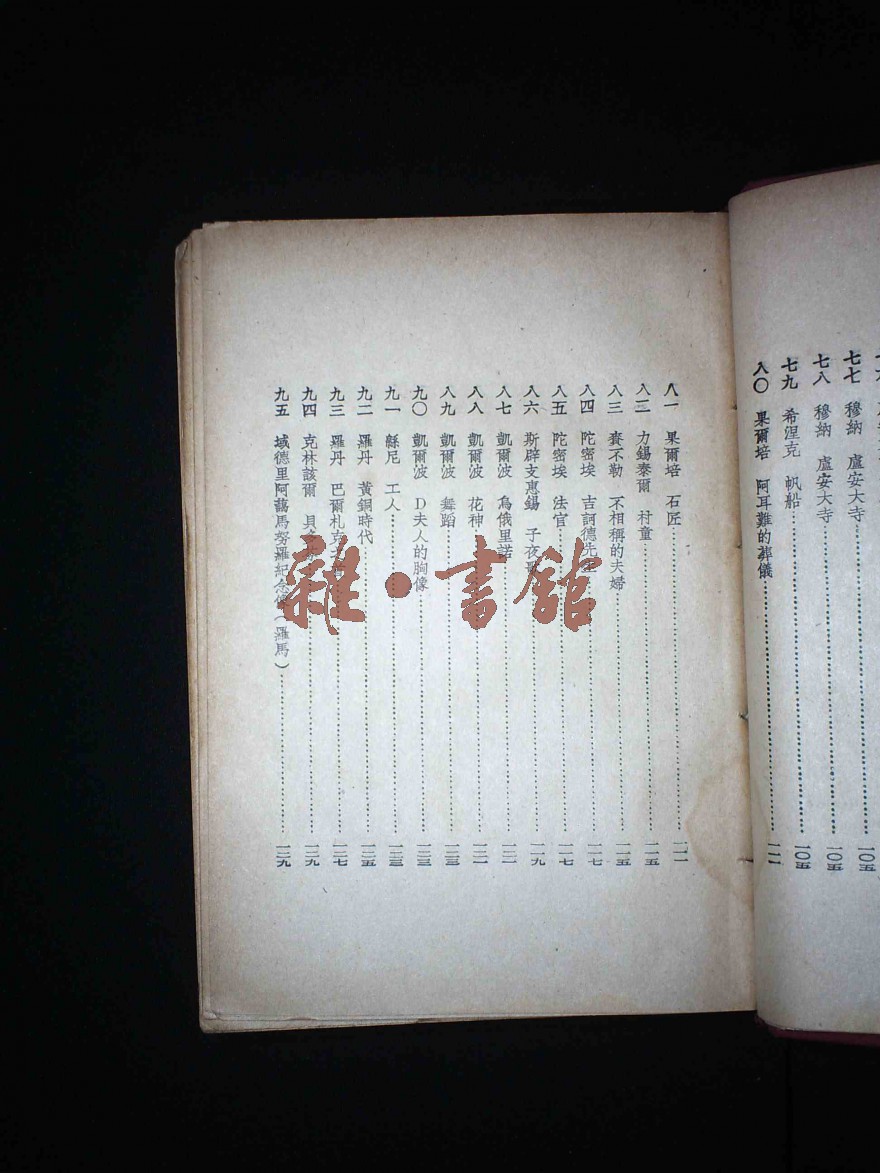 七七 穆納 盧安大寺……一〇五
七八 穆納 盧安大寺……一〇五
七九 希涅克 帆船……一〇五
八〇 果爾培 阿耳難的葬儀……一一一
八一 果爾培 石匠……一一一
八二 力錫泰爾 村童……一一五
八三 賽不勒 不相稱的夫婦……一一五
八四 陀密埃 吉訶德先生……一一七
八五 陀密埃 法官……一一七
八六 斯辟支惠錫 子夜……一一九
八七 凱爾波 烏俄里諾……一二一
八八 凱爾波 花神……一二一
八九 凱爾波 舞蹈……一二三
九〇 凱爾波 D夫人的胸像……一二三
九一 緜尼 工人……一二三
九二 羅丹 黃銅時代……一二五
九三 羅丹 巴爾札克……一二七
九四 克林該爾 貝……一二九
九五 域德里阿藹馬努羅紀念像（羅馬）……一二九
雜·書館